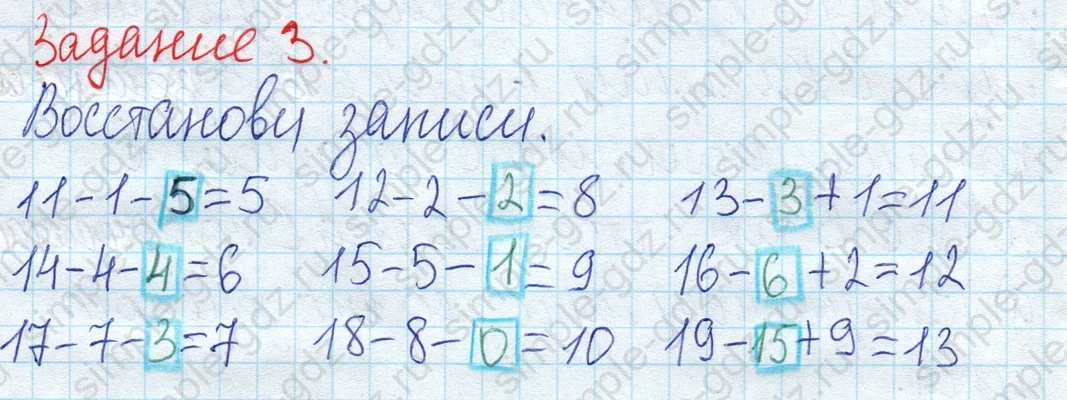 Задание 3.
Восстанови записи.
11-1-5=5 12-2-2=8 13-3+1=11
14-4-4=6 15-5-1=9 16-6+2=12
17-7-3=7 18-8-0=10 19-15+9=13
simple-gdz.ru